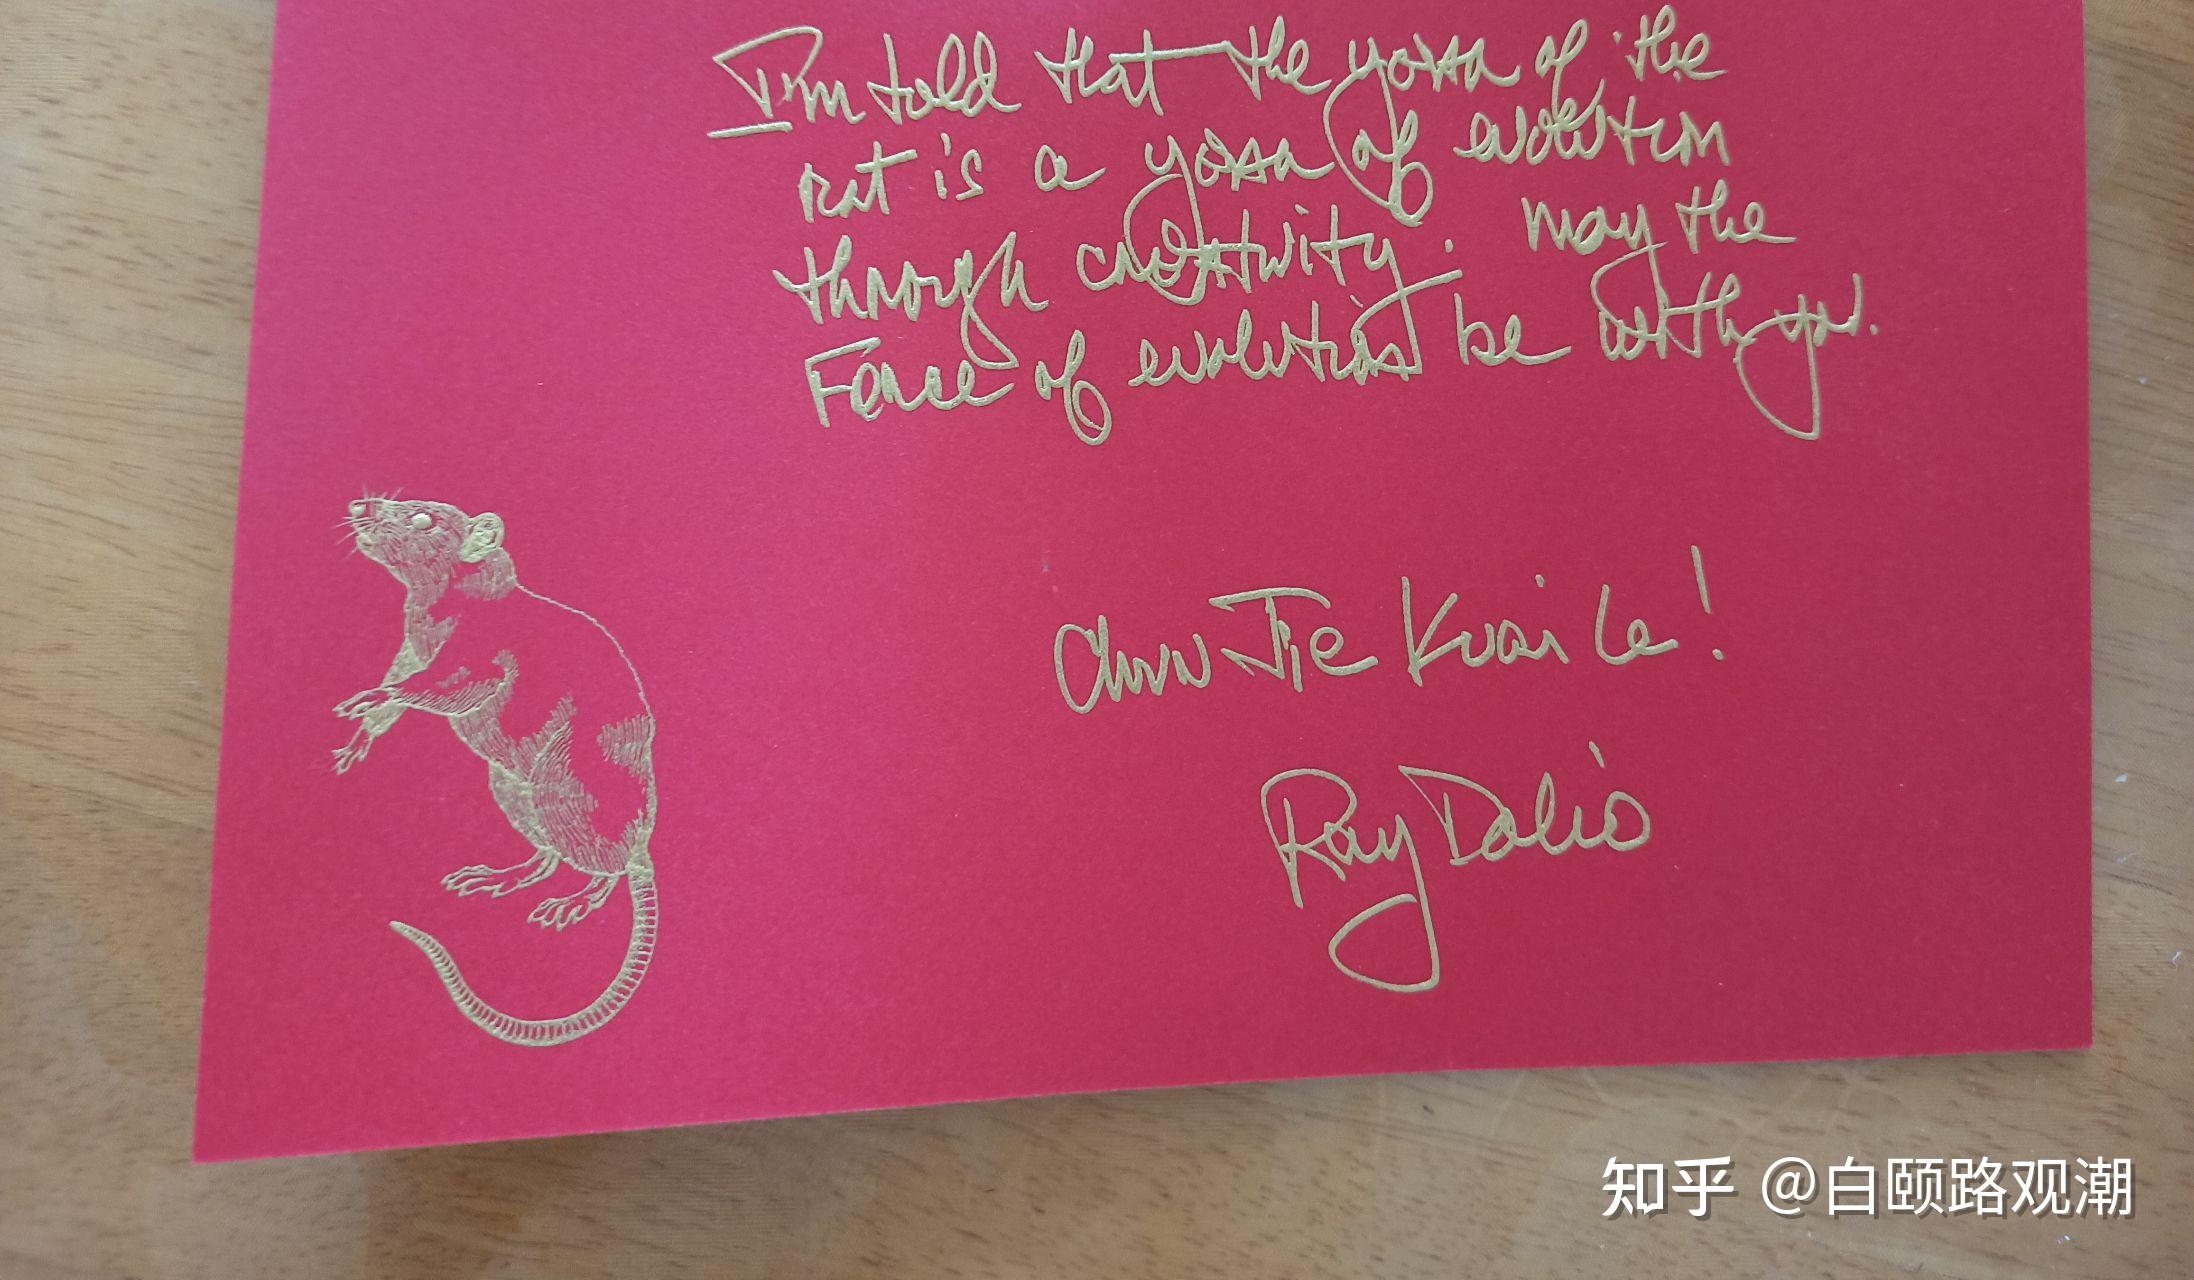 I'm told that the year of the
rat is a year of evolution
through creativity. May the
Force of evolution be with you.
Chun Jie Kuai Le!
Ray Dalio
知乎 @白颐路观潮